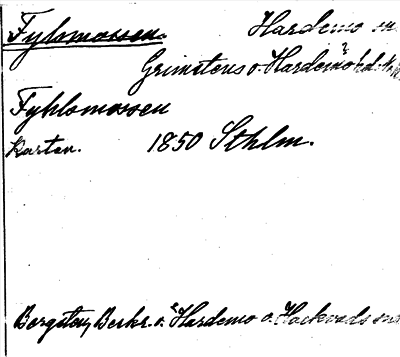 Fyhsmossen. Hardemo sn
Grimstens o. Hardemo hd.
Fyhlsmossen
Kartan. 1850 Sthlm.
Bergsten, Beskr. o. Hardemo o. Hackvads sn